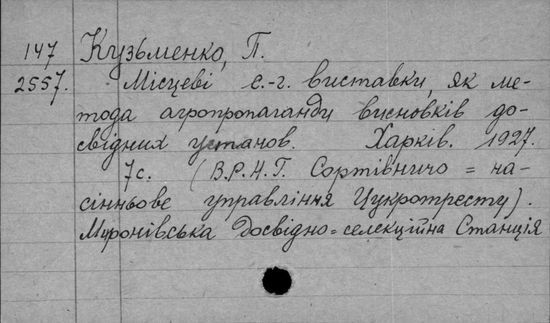 147 Кузьменко, П.
2557. Місцеві с.-г. виставки, як ме-
тода агропропаганди висновків до-
свідних установ. Харків. 1927.
7с. (В.Р.Н.Г. Сортівничо=на-
сінньове управління Цукротресту).
Миронівська Досвідно=селекційна Станція